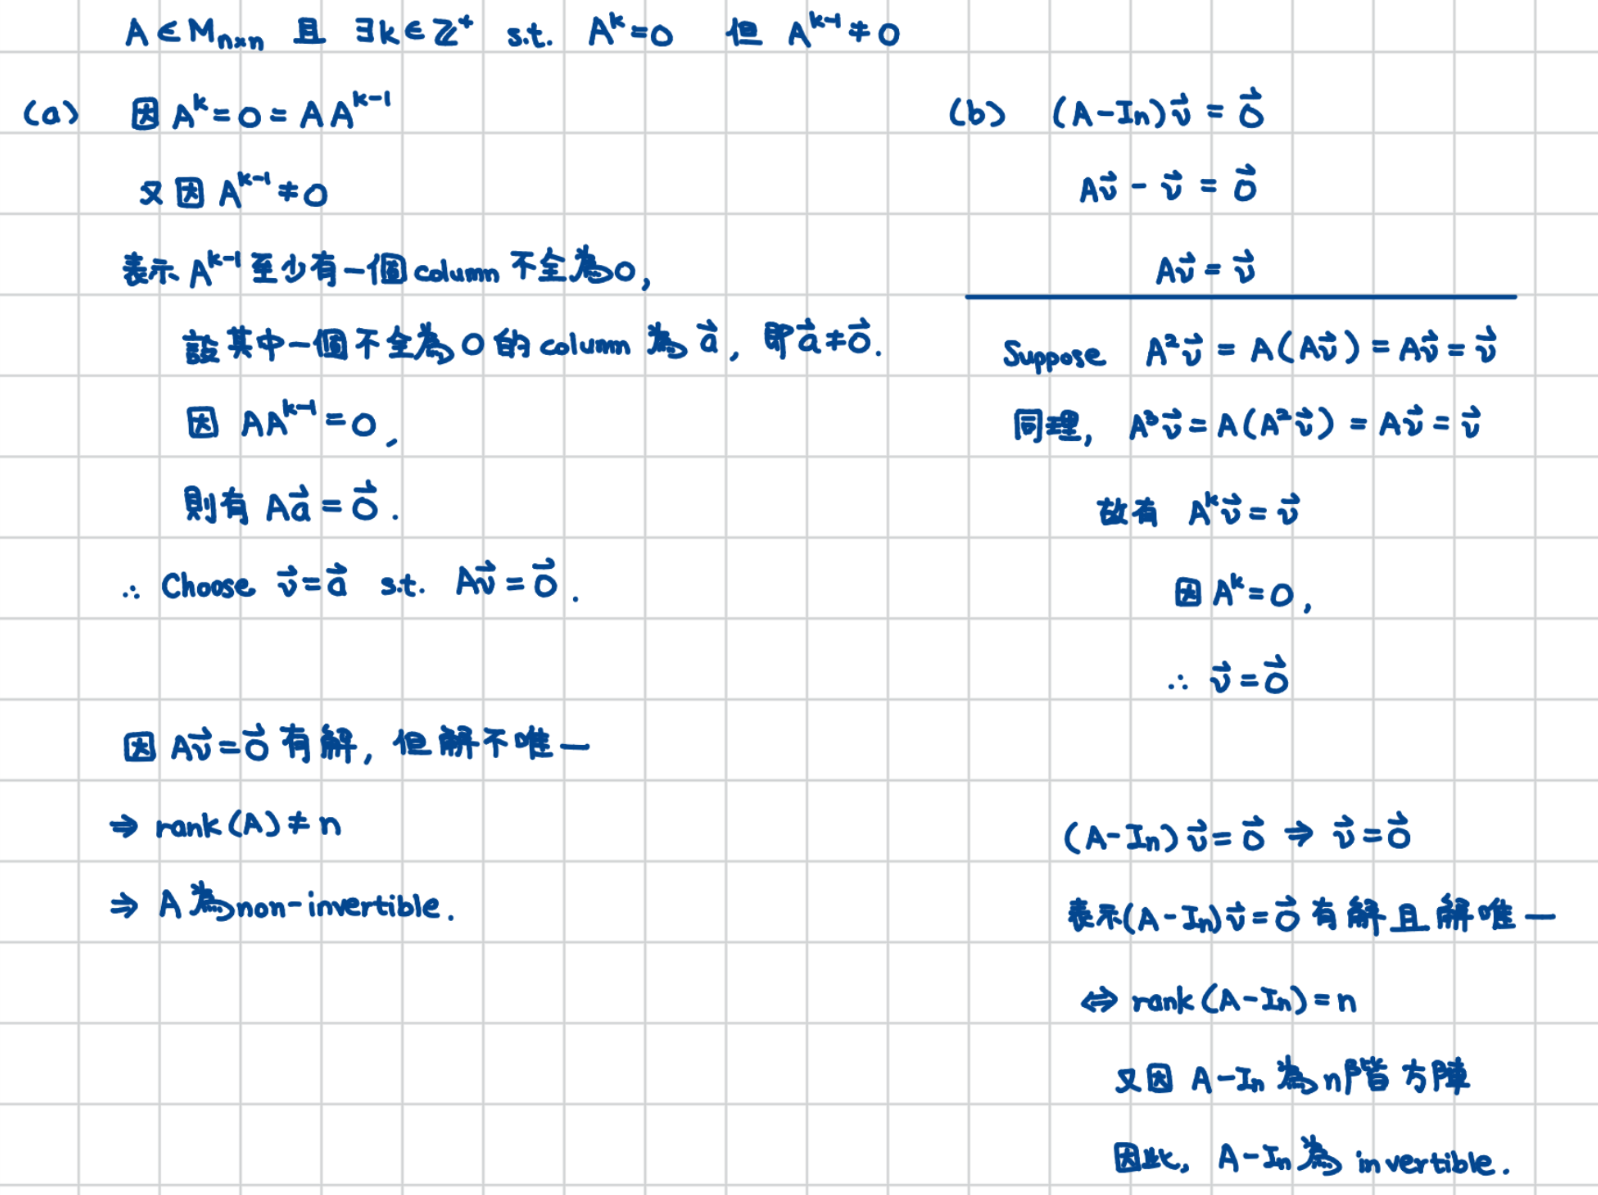 A ∈ M_{n×n} 且 ∃k ∈ ℤ⁺ s.t. A^k = 0 但 A^{k-1} ≠ 0
(a) 因 A^k = 0 = A A^{k-1}
又因 A^{k-1} ≠ 0
表示 A^{k-1} 至少有一個 column 不全為 0,
設其中一個不全為 0 的 column 為 a⃗, 即 a⃗ ≠ 0⃗.
因 AA^{k-1} = 0,
則有 Aa⃗ = 0⃗.
∴ Choose v⃗ = a⃗ s.t. Av⃗ = 0⃗.
因 Av⃗ = 0⃗ 有解, 但解不唯一
⇒ rank(A) ≠ n
⇒ A 為 non-invertible.
(b) (A-In)v⃗ = 0⃗
Av⃗ - v⃗ = 0⃗
Av⃗ = v⃗
Suppose A²v⃗ = A(Av⃗) = Av⃗ = v⃗
同理, A³v⃗ = A(A²v⃗) = Av⃗ = v⃗
故有 A^k v⃗ = v⃗
因 A^k = 0,
∴ v⃗ = 0⃗
(A-In)v⃗ = 0⃗ ⇒ v⃗ = 0⃗
表示(A-In)v⃗ = 0⃗ 有解且解唯一
⇔ rank(A-In) = n
又因 A-In 為 n階方陣
因此, A-In 為 invertible.